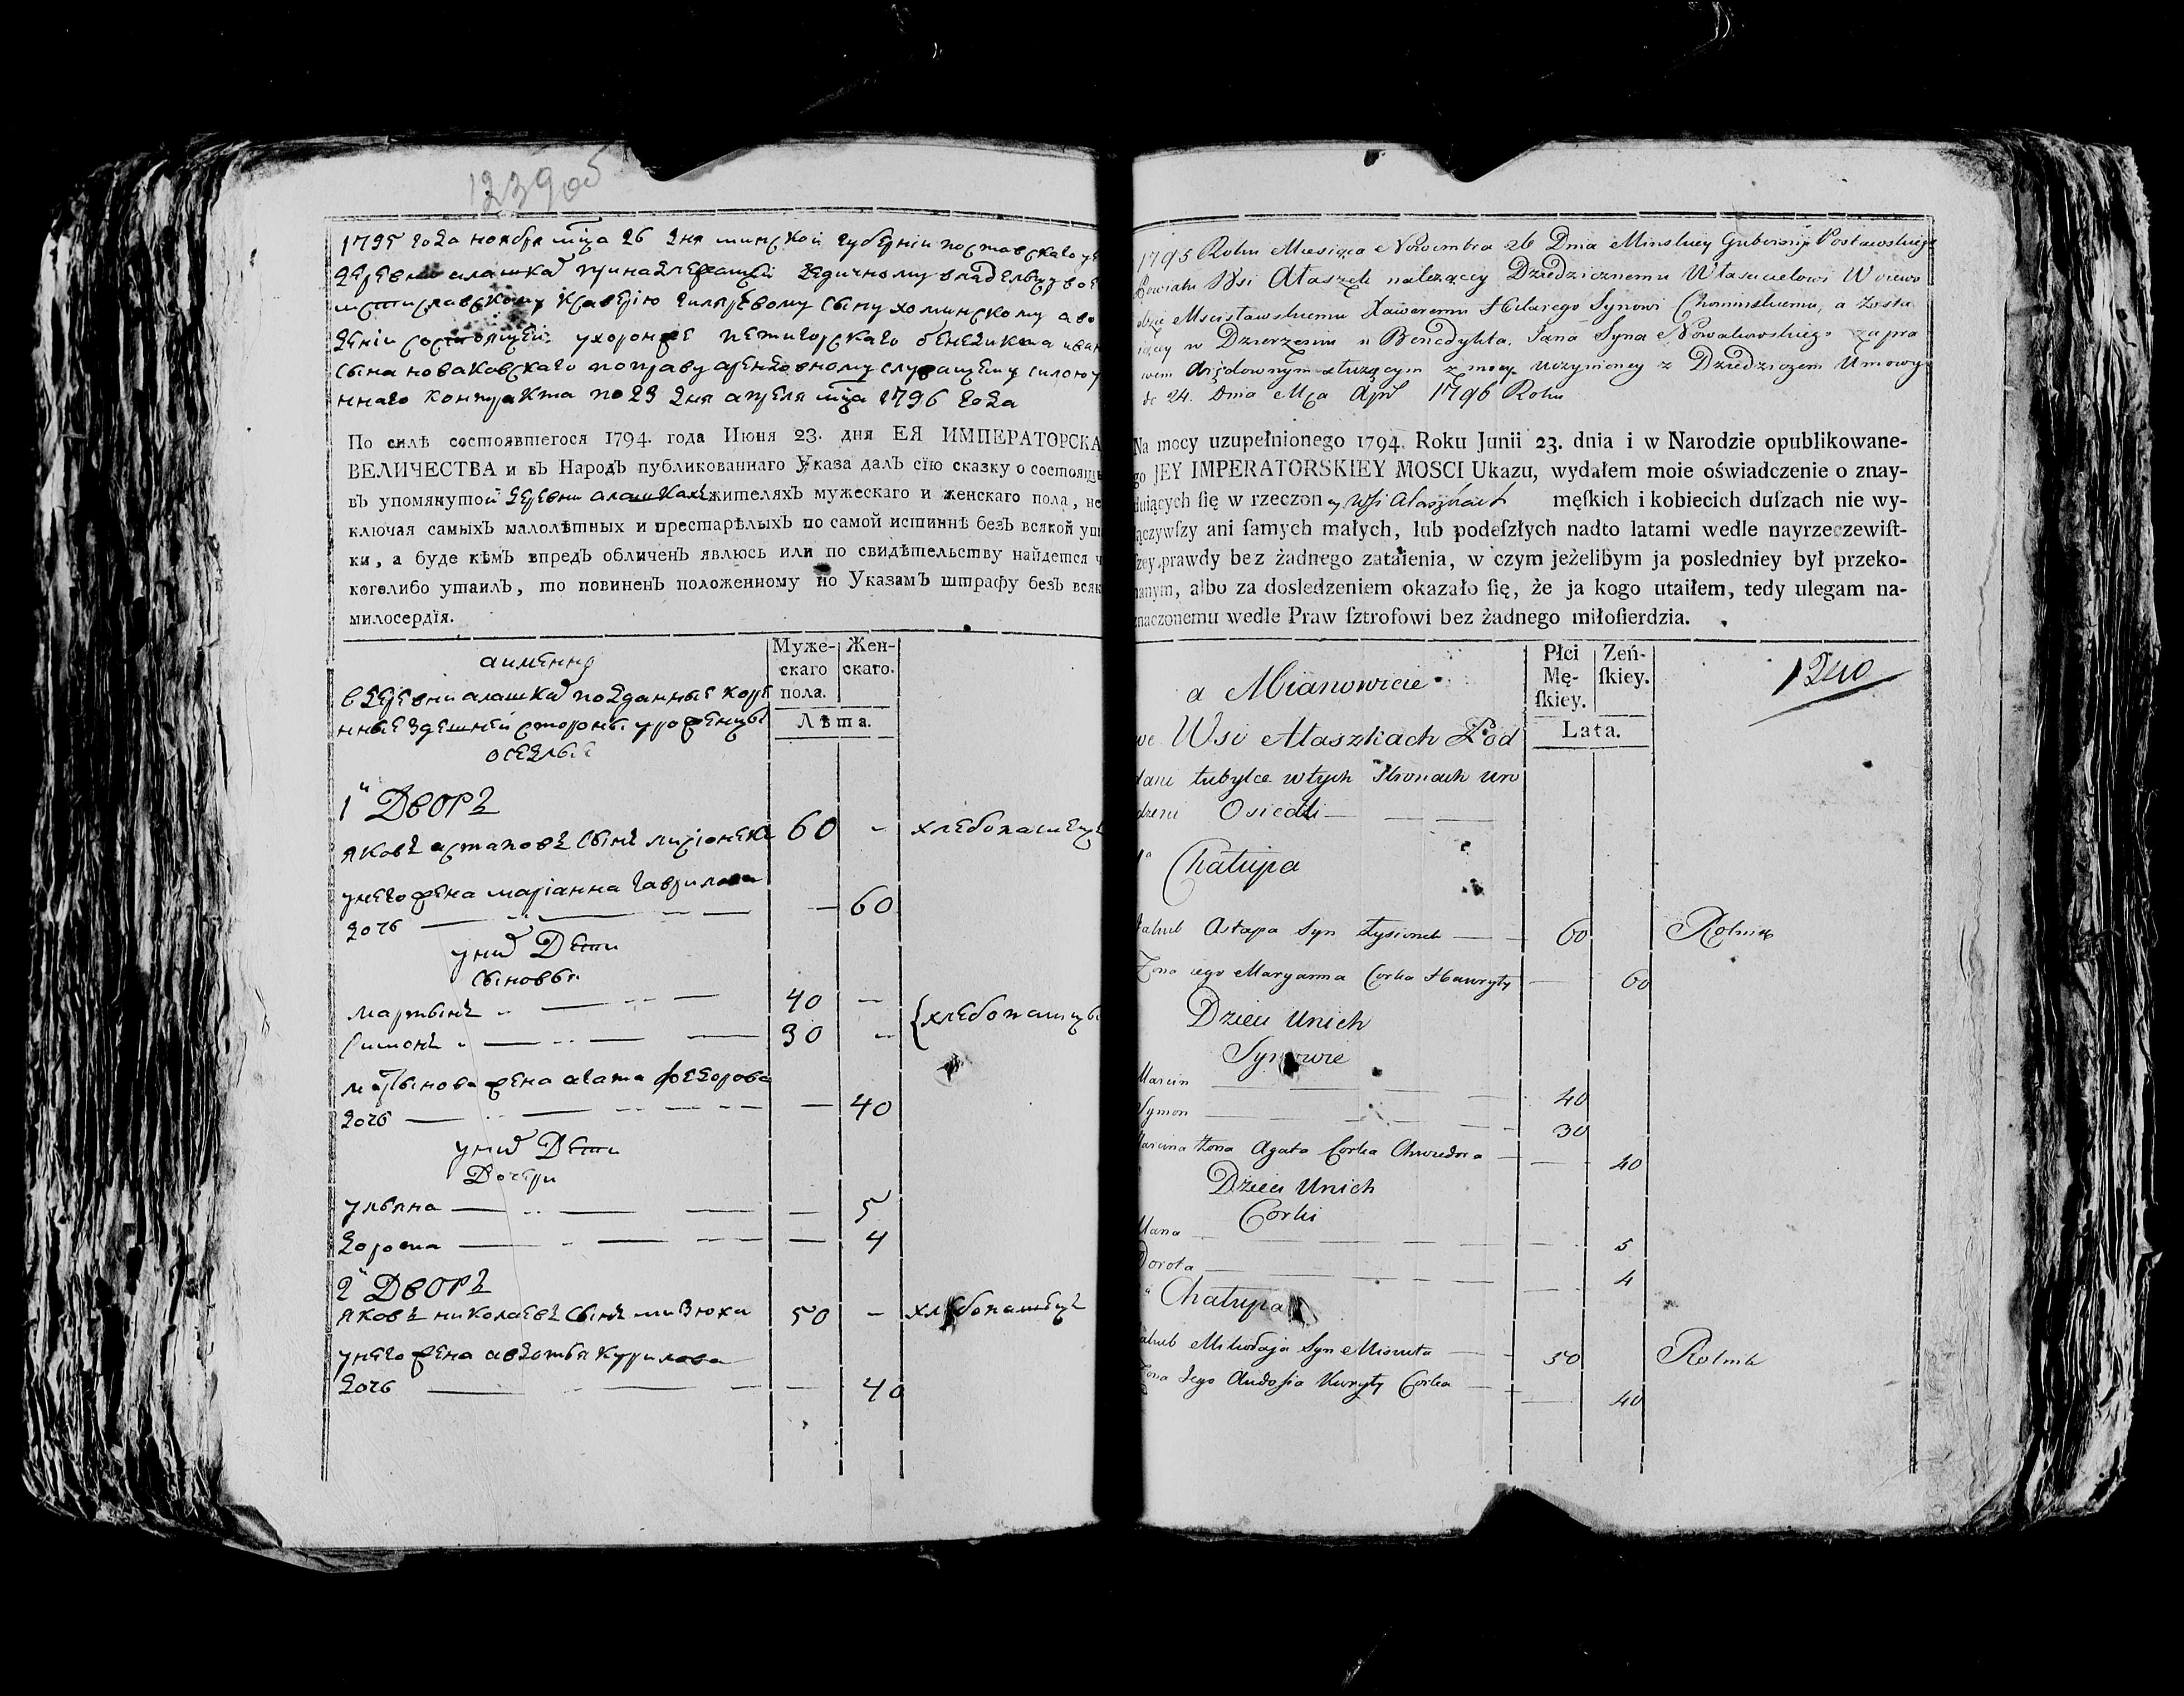 1239 об
1795 года ноября мца 26 дня минской губернии поставскаго уе
деревни алашкахъ принадлежащей дедичному владельцу вое
мстиславскому ксаверию гилярьевому сыну хоминскому а во
дении состоящей ухоронже петигорскаго бенедикта иван
сына новаковскаго поправу арендовному служащему силою у
ннаго контракта по 23 дня апреля мца 1796 года
По силѣ состоявшегося 1794. года Июня 23. дня ЕЯ ИМПЕРАТОРСКА
ВЕЛИЧЕСТВА и въ Народъ публикованнаго Указа далъ сію сказку о состоящи
въ упомянутой деревни алашкахъ жителяхъ мужескаго и женскаго пола, не
ключая самыхъ малолѣтныхъ и престарѣлыхъ по самой истиннѣ безъ всякой ут
ки, а буде кѣмъ впредъ обличенъ явлюсь или по свидѣтельству найдется ч
коголибо утаилъ, то повиненъ положенному по Указамъ штрафу безъ всяк
милосердїя.
Муже- Жен-
скаго скаго.
пола.
Лѣта.
аименно
вдеревни алашкахъ подданные коре
нные здешней стороны уроженцы
оседлые
1й Дворъ
яковъ астаповъ сынъ лисіонекъ 60 - хлебопашецъ
унего жена маріанна гаврилова
дочь — 60
унихъ Дети
сыновья
мартынъ 40 -
симонъ 30 - { хлебопашцы
мартынова жена агата федорова
дочь — 40
унихъ Дети
Дочери
ульяна — 5
дорота — 4
2й Дворъ
яковъ николаевъ сынъ мизюка 50 - хлебопашецъ
унего жена авдотья курилова
дочь — 40
1795 Roku Miesiąca Nowembra 26 Dnia Minskiey Gubernij Postawskiego
Powiatu Wsi Ałaszek należącey Dziedzicznemu Własicielowi Woiewo
dzie Mscisławskiemu Xaweremu Hilarego Synowi Chominskiemu, a zosta
iącey w Dzierżeniu u Benedykta, Jana Syna Nowakowskiego za pra
wem Arędownym służącym z mocy uczynioney z Dziedzicem Umowy
do 24. Dnia Mca Apr 1796 Roku
Na mocy uzupełnionego 1794. Roku Junii 23. dnia i w Narodzie opublikowane-
go JEY IMPERATORSKIEY MOSCI Ukazu, wydałem moie oświadczenie o znay-
duiących ſię w rzeczoney Wsi Ałaszkach męſkich i kobiecich duſzach nie wy-
łączywſzy ani ſamych małych, lub podeſzłych nadto latami wedle nayrzeczewiſt-
ſzey prawdy bez żadnego zataienia, w czym jeżelibym ja posledniey był przeko-
nanym, albo za dosledzeniem okazało ſię, że ja kogo utaiłem, tedy ulegam na-
znaczonemu wedle Praw ſztrofowi bez żadnego miłoſierdzia.
Płci Zeń-
Mę- ſkiey.
ſkiey.
Lata.
1240
a Mianowicie
we Wsi Ałaszkach Pod
dani tubylce wtych Stronach uro
dzeni Osiedli
1a Chałupa
Jakub Astapa Syn Łysionek 60 Rolnik
Zona iego Maryanna Corka Hawryły — 60
Dzieci Unich
Synowie
Marcin 40
Symon 30
Marcina Zona Agata Corka Chwiedora — 40
Dzieci Unich
Corki
Ulana — 5
Dorota — 4
Chałupa
Jakub Mikołaja Syn Miziuka 50 Rolnik
Zona Jego Audosia Kuryły Corka — 40